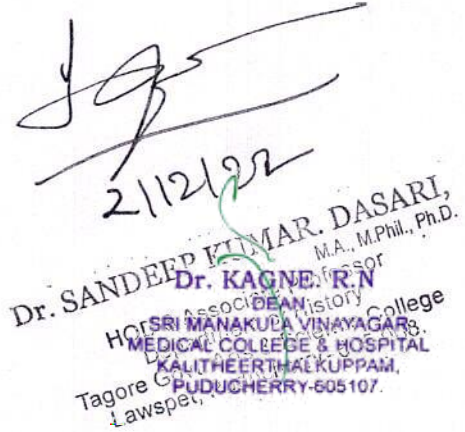 2/12/22
Dr. SANDEEP KUMAR. DASARI,
M.A., M.Phil., Ph.D.
Associate Professor
History
Tagore College
Lawspet,
Dr. KAGNE. R.N
DEAN
SRI MANAKULA VINAYAGAR
MEDICAL COLLEGE & HOSPITAL
KALITHEERTHALKUPPAM,
PUDUCHERRY-605107.